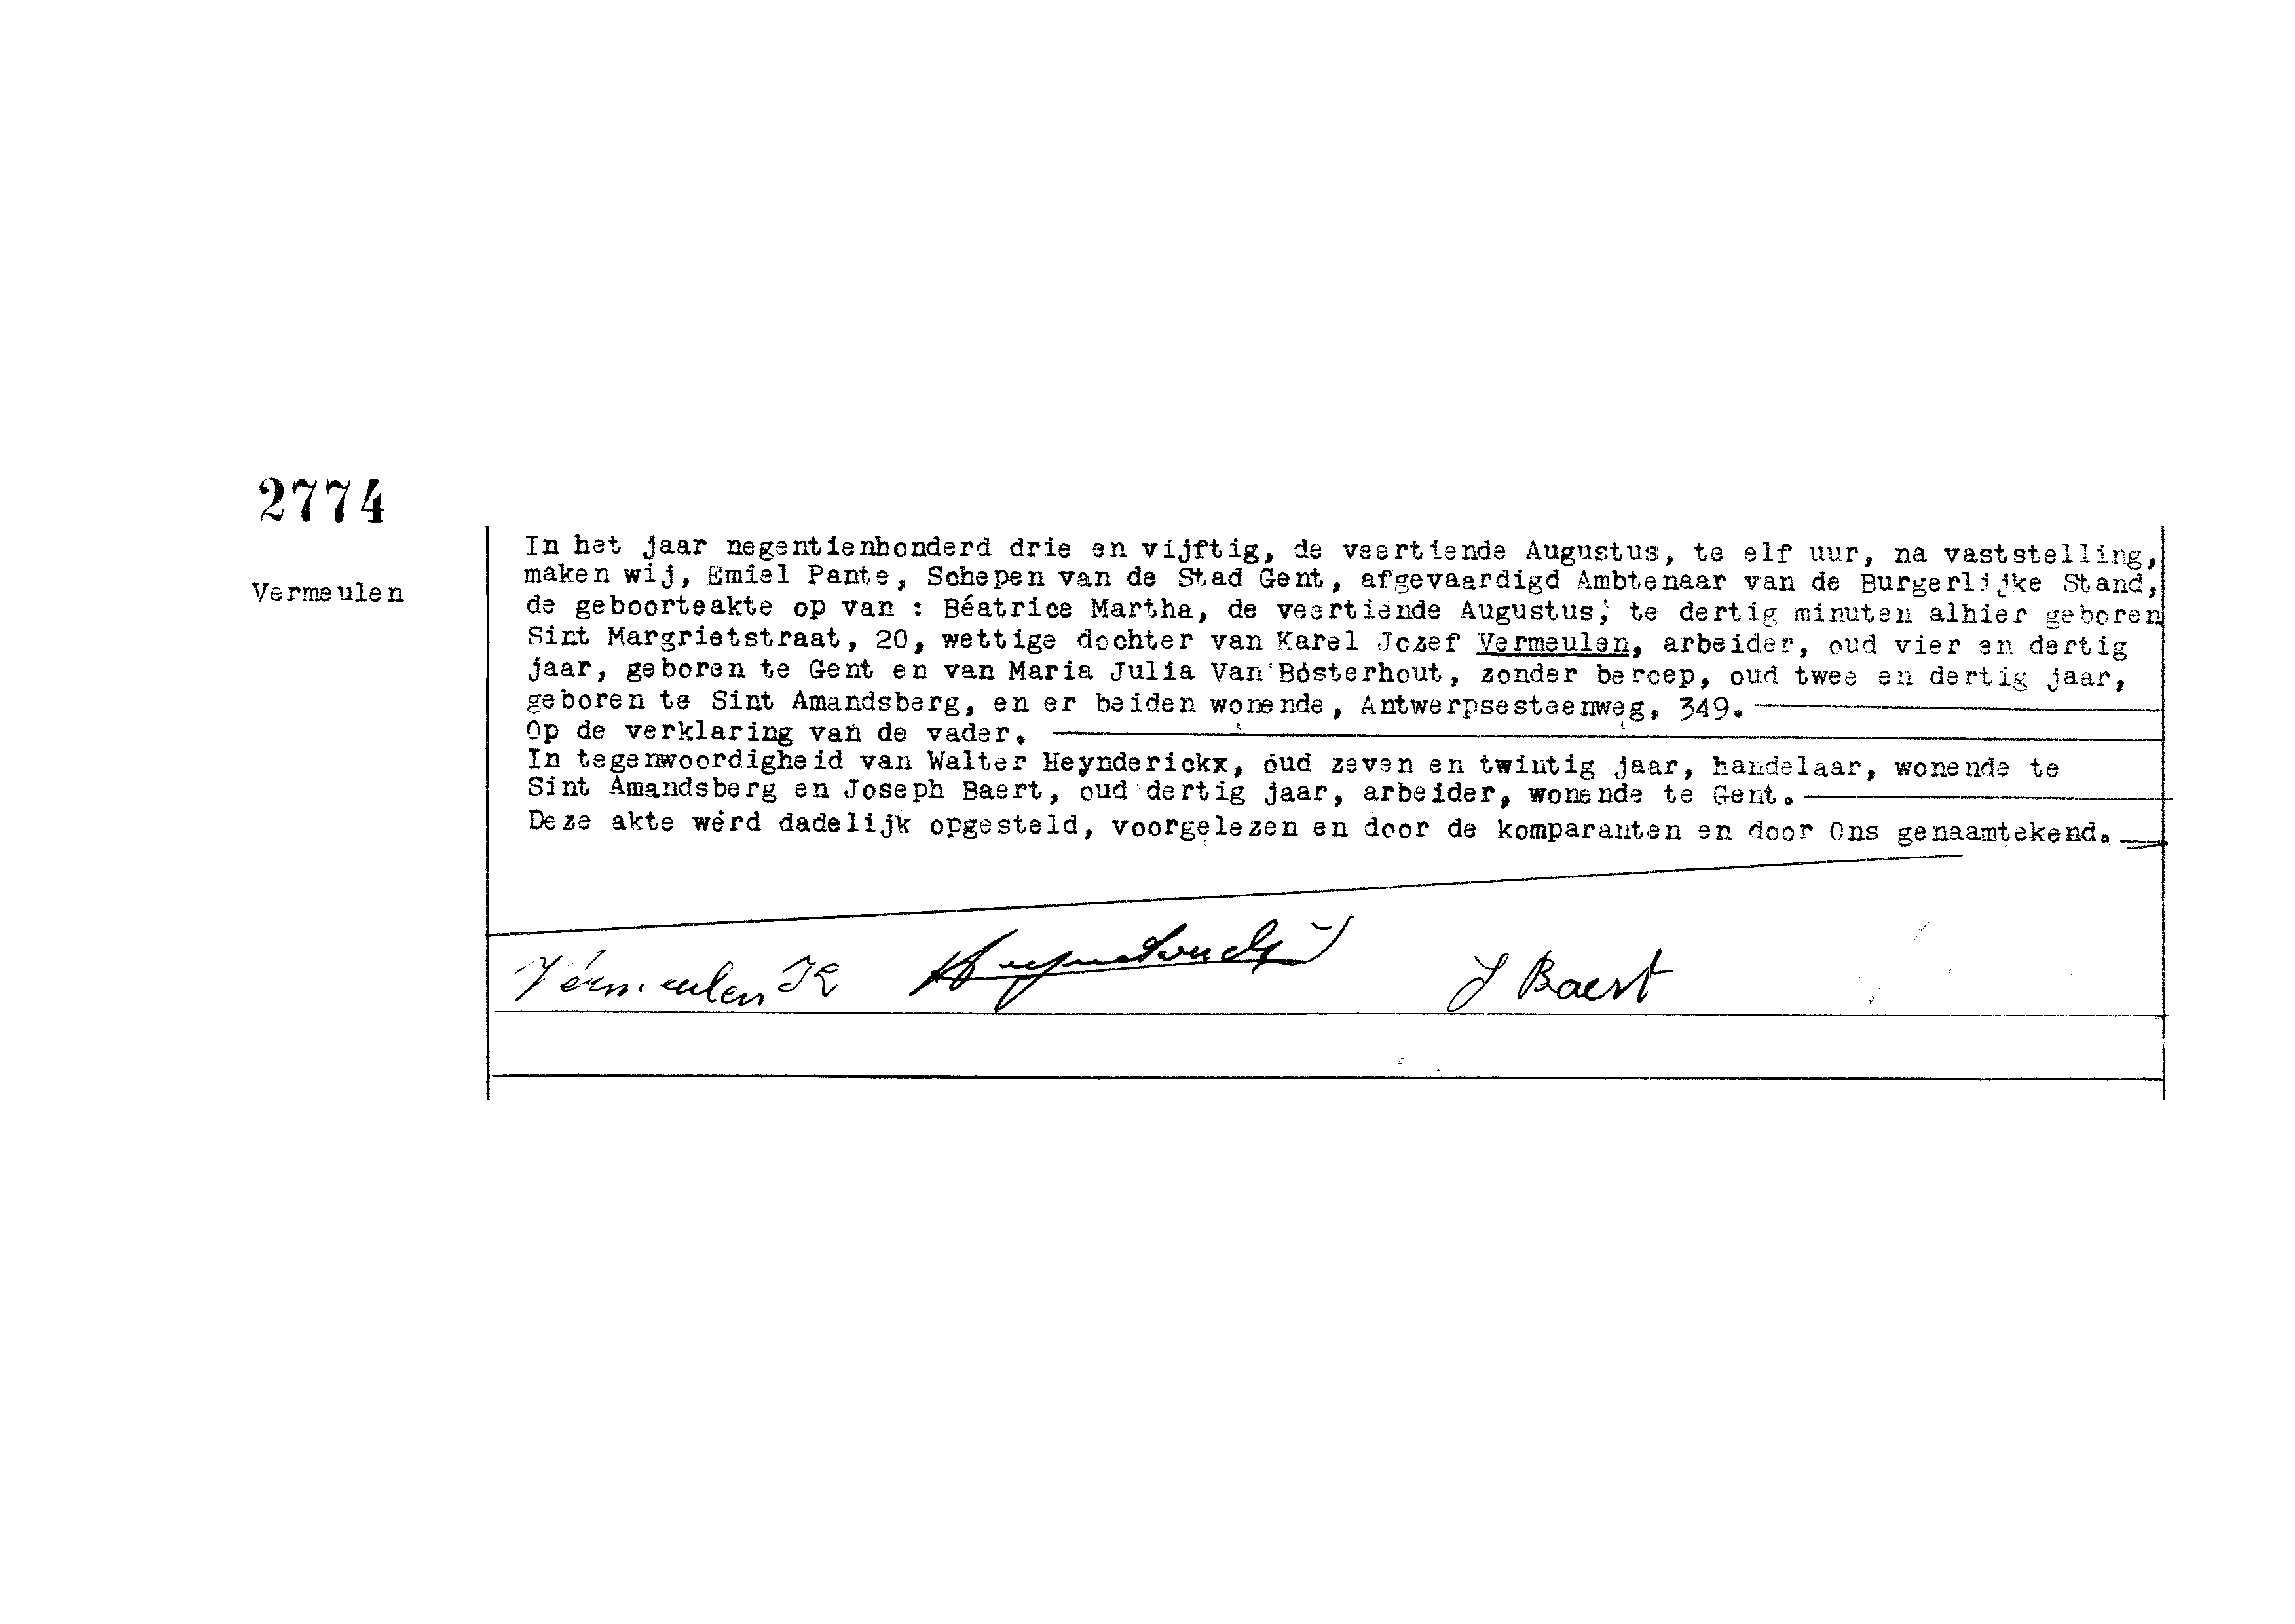 2774
Vermeulen
In het jaar negentienhonderd drie en vijftig, de veertiende Augustus, te elf uur, na vaststelling,
maken wij, Emiel Pante, Schepen van de Stad Gent, afgevaardigd Ambtenaar van de Burgerlijke Stand,
de geboorteakte op van : Béatrice Martha, de veertiende Augustus, te dertig minuten alhier geboren
Sint Margrietstraat, 20, wettige dochter van Karel Jozef Vermeulen, arbeider, oud vier en dertig
jaar, geboren te Gent en van Maria Julia Van Bósterhout, zonder beroep, oud twee en dertig jaar,
geboren te Sint Amandsberg, en er beiden wonende, Antwerpsesteenweg, 349.
Op de verklaring van de vader.
In tegenwoordigheid van Walter Heynderickx, oud zeven en twintig jaar, handelaar, wonende te
Sint Amandsberg en Joseph Baert, oud dertig jaar, arbeider, wonende te Gent.
Deze akte werd dadelijk opgesteld, voorgelezen en door de komparanten en door Ons genaamtekend.
Vermeulen J Baert